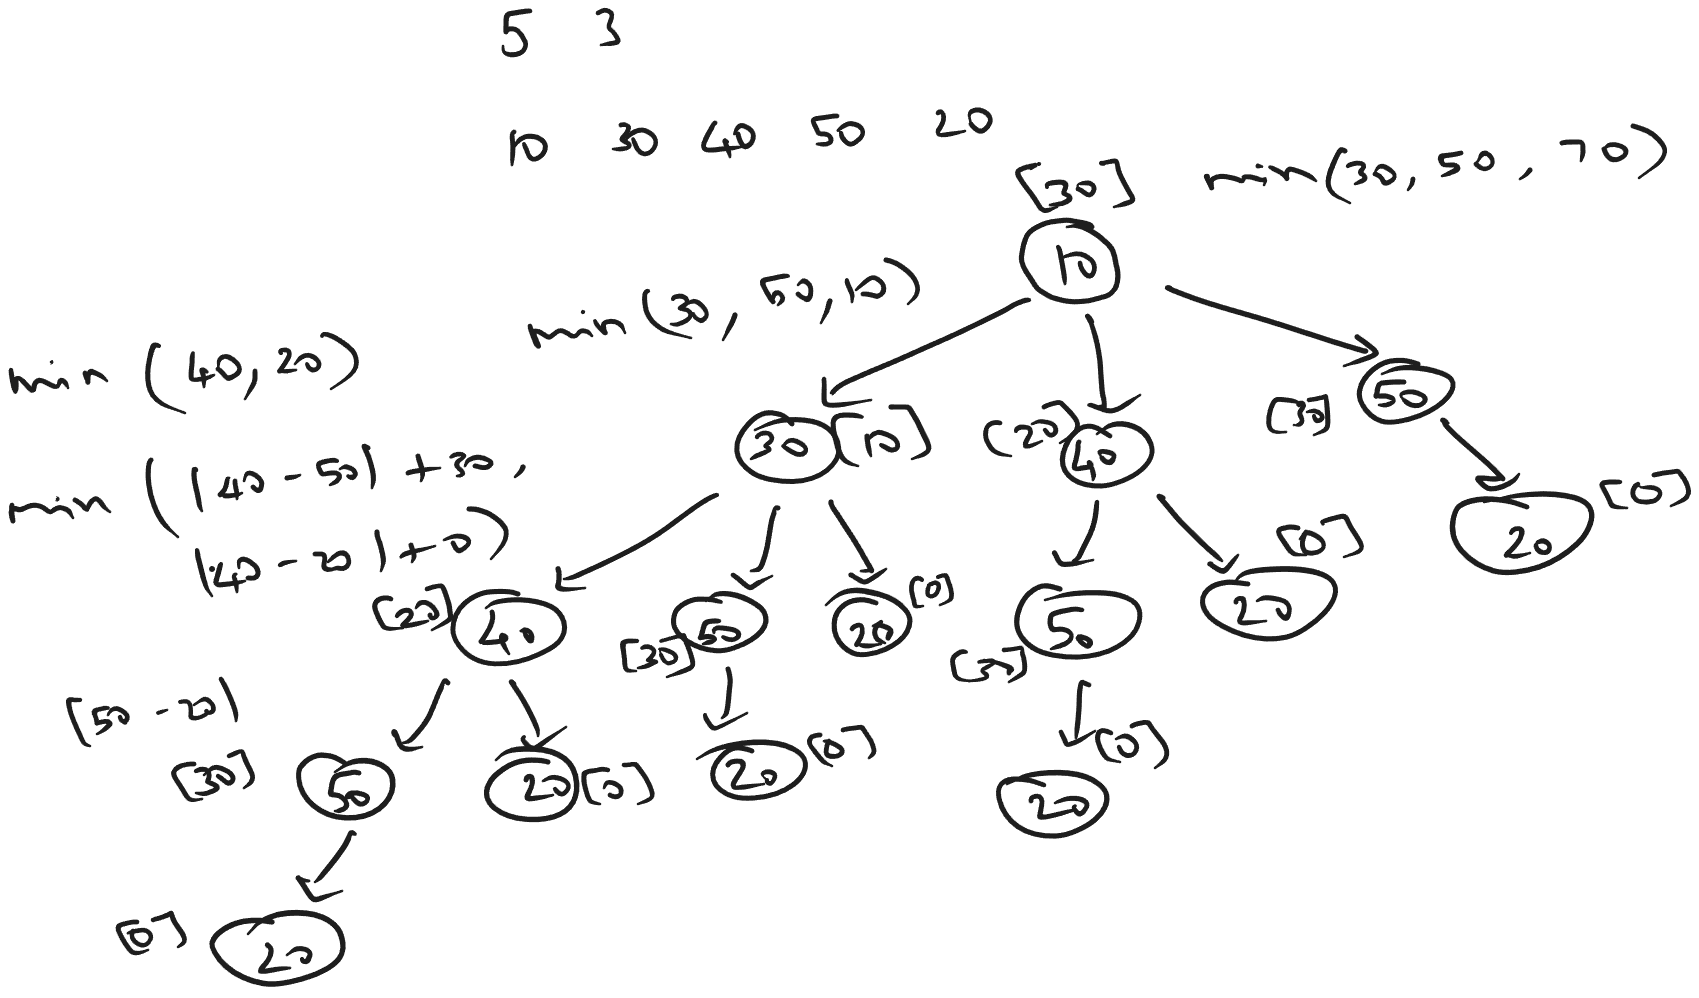 5 3
10 30 40 50 20
[30] min(30, 50, 70)
10
min(30, 50, 10)
min (40, 20)
50
[30]
30 [10] [20] 40
min (|40 - 50| + 30,
|40 - 20| + 0)
[0]
20
[0]
[20] 40
50 [30]
20 [0]
50
20
[30]
|50 - 20|
[30] 50
20 [0]
20 [0]
[0]
20
[0] 20